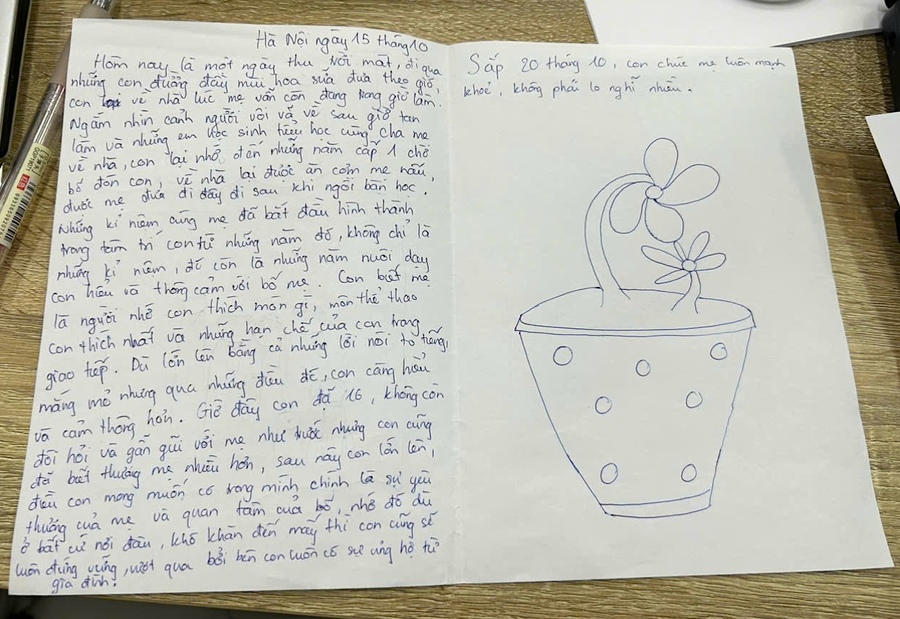 Hà Nội ngày 15 tháng 10
Hôm nay là một ngày thu với mát, đi qua
những con đường đầy mùi hoa sữa đưa theo gió,
con về nhà lúc mẹ vẫn còn đang trong giờ làm.
Ngắm nhìn cảnh người vội vã về sau giờ tan
làm và những em học sinh tiểu học cùng cha mẹ
về nhà, con lại nhớ đến những năm cấp 1 chờ
bố đón con, về nhà lại được ăn cơm mẹ nấu,
được mẹ đưa đi đây đi sau khi ngồi bàn học.
Những kỉ niệm cùng mẹ đã bắt đầu hình thành
trong tâm trí con từ những năm đó, không chỉ là
những kỉ niệm, đó còn là những năm nuôi dạy
con hiểu và thông cảm với bố mẹ. Con biết mẹ
là người nhớ con thích món gì, môn thể thao
con thích nhất và những hạn chế của con trong
giao tiếp. Dù lớn lên bằng cả những lời nói to tiếng,
mắng mỏ nhưng qua những điều đó, con càng hiểu
và cảm thông hơn. Giờ đây con đã 16, không còn
đòi hỏi và gần gũi với mẹ như trước nhưng con cũng
đã biết thương mẹ nhiều hơn, sau này con lớn lên,
điều con mong muốn có trong mình chính là sự yêu
thương của mẹ và quan tâm của bố, nhờ đó dù
ở bất cứ nơi đâu, khó khăn đến mấy thì con cũng sẽ
luôn đứng vững, vượt qua bởi bên con luôn có sự ủng hộ từ
gia đình.
Sắp 20 tháng 10, con chúc mẹ luôn mạnh
khoẻ, không phải lo nghĩ nhiều.